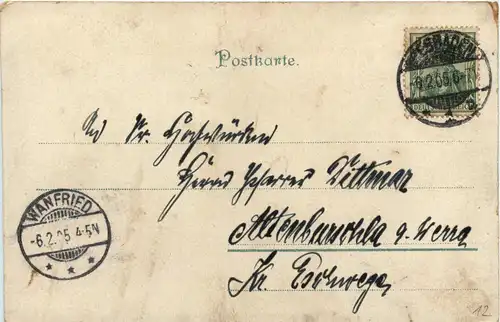 Postkarte.
WIESBADEN
6.2.05
An Sr. Hochwürden
Herrn Pfarrer Dittmar
Altenburschla a. Werra
Kr. Eschwege
WANFRIED
-6.2.05 4-5N
12